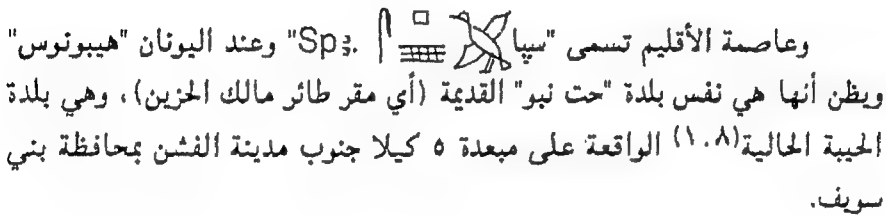 وعاصمة الأقليم تسمى "سيپا 𓋴𓊪𓈇𓅯 .Spꜣ" وعند اليونان "هيبونوس"
ويظن أنها هي نفس بلدة "حت نبو" القديمة (أي مقر طائر مالك الحزين)، وهي بلدة
الحيبة الحالية(١٠٨) الواقعة على مبعدة ٥ كيلا جنوب مدينة الفشن بمحافظة بني
سويف.